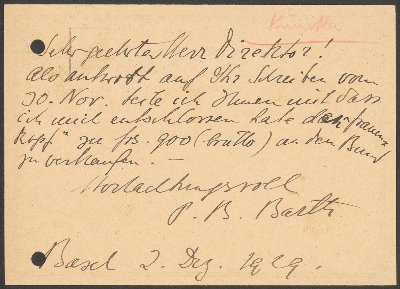 Künstler
Sehr geehrter Herr Direktor!
als antwort auf Ihr Schreiben vom
30. Nov. teile ich Ihnen mit dass
ich mich entschlossen habe den „Frauen-
kopf" zu frs. 900 (brutto) an den Bund
zu verkaufen. —
Hochachtungsvoll
P. B. Barth
Basel 2. Dez. 1929.